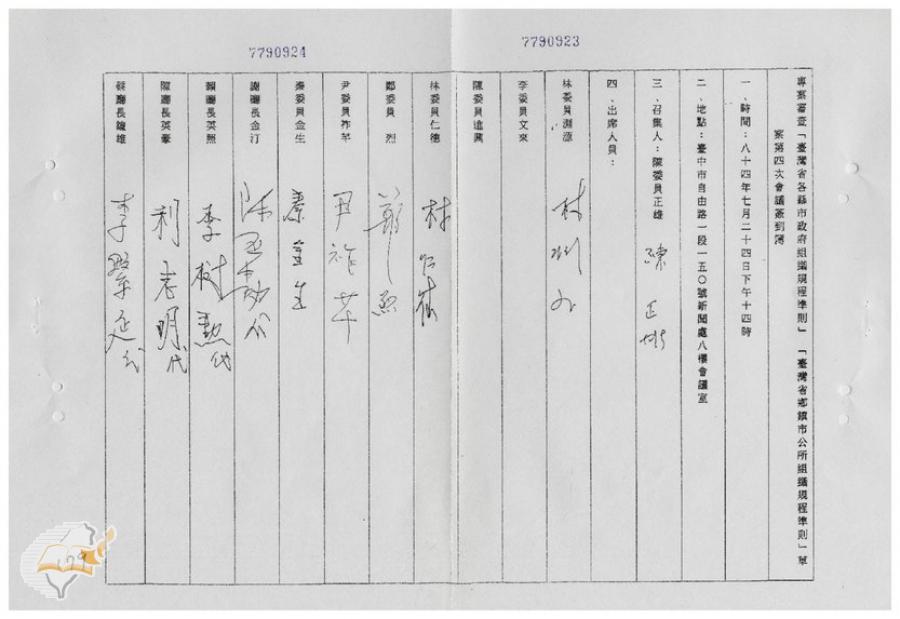 7790923
7790924
專案審查「臺灣省各縣市政府組織規程準則」「臺灣省鄉鎮市公所組織規程準則」草
案第四次會議簽到簿
一、時間：八十四年七月二十四日下午十四時
二、地點：臺中市自由路一段一五〇號新聞處八樓會議室
三、召集人：陳委員正雄 陳正雄
四、出席人員：
林委員淵源 林淵
李委員文來
陳委員進興
林委員仁德 林仁德
鄭委員 烈 鄭烈
尹委員祚芊 尹祚芊
秦委員金生 秦金生
謝廳長金汀
賴廳長英照 李樹勳代
陳廳長英豪 利志明代
蘇廳長鐘雄 李
129